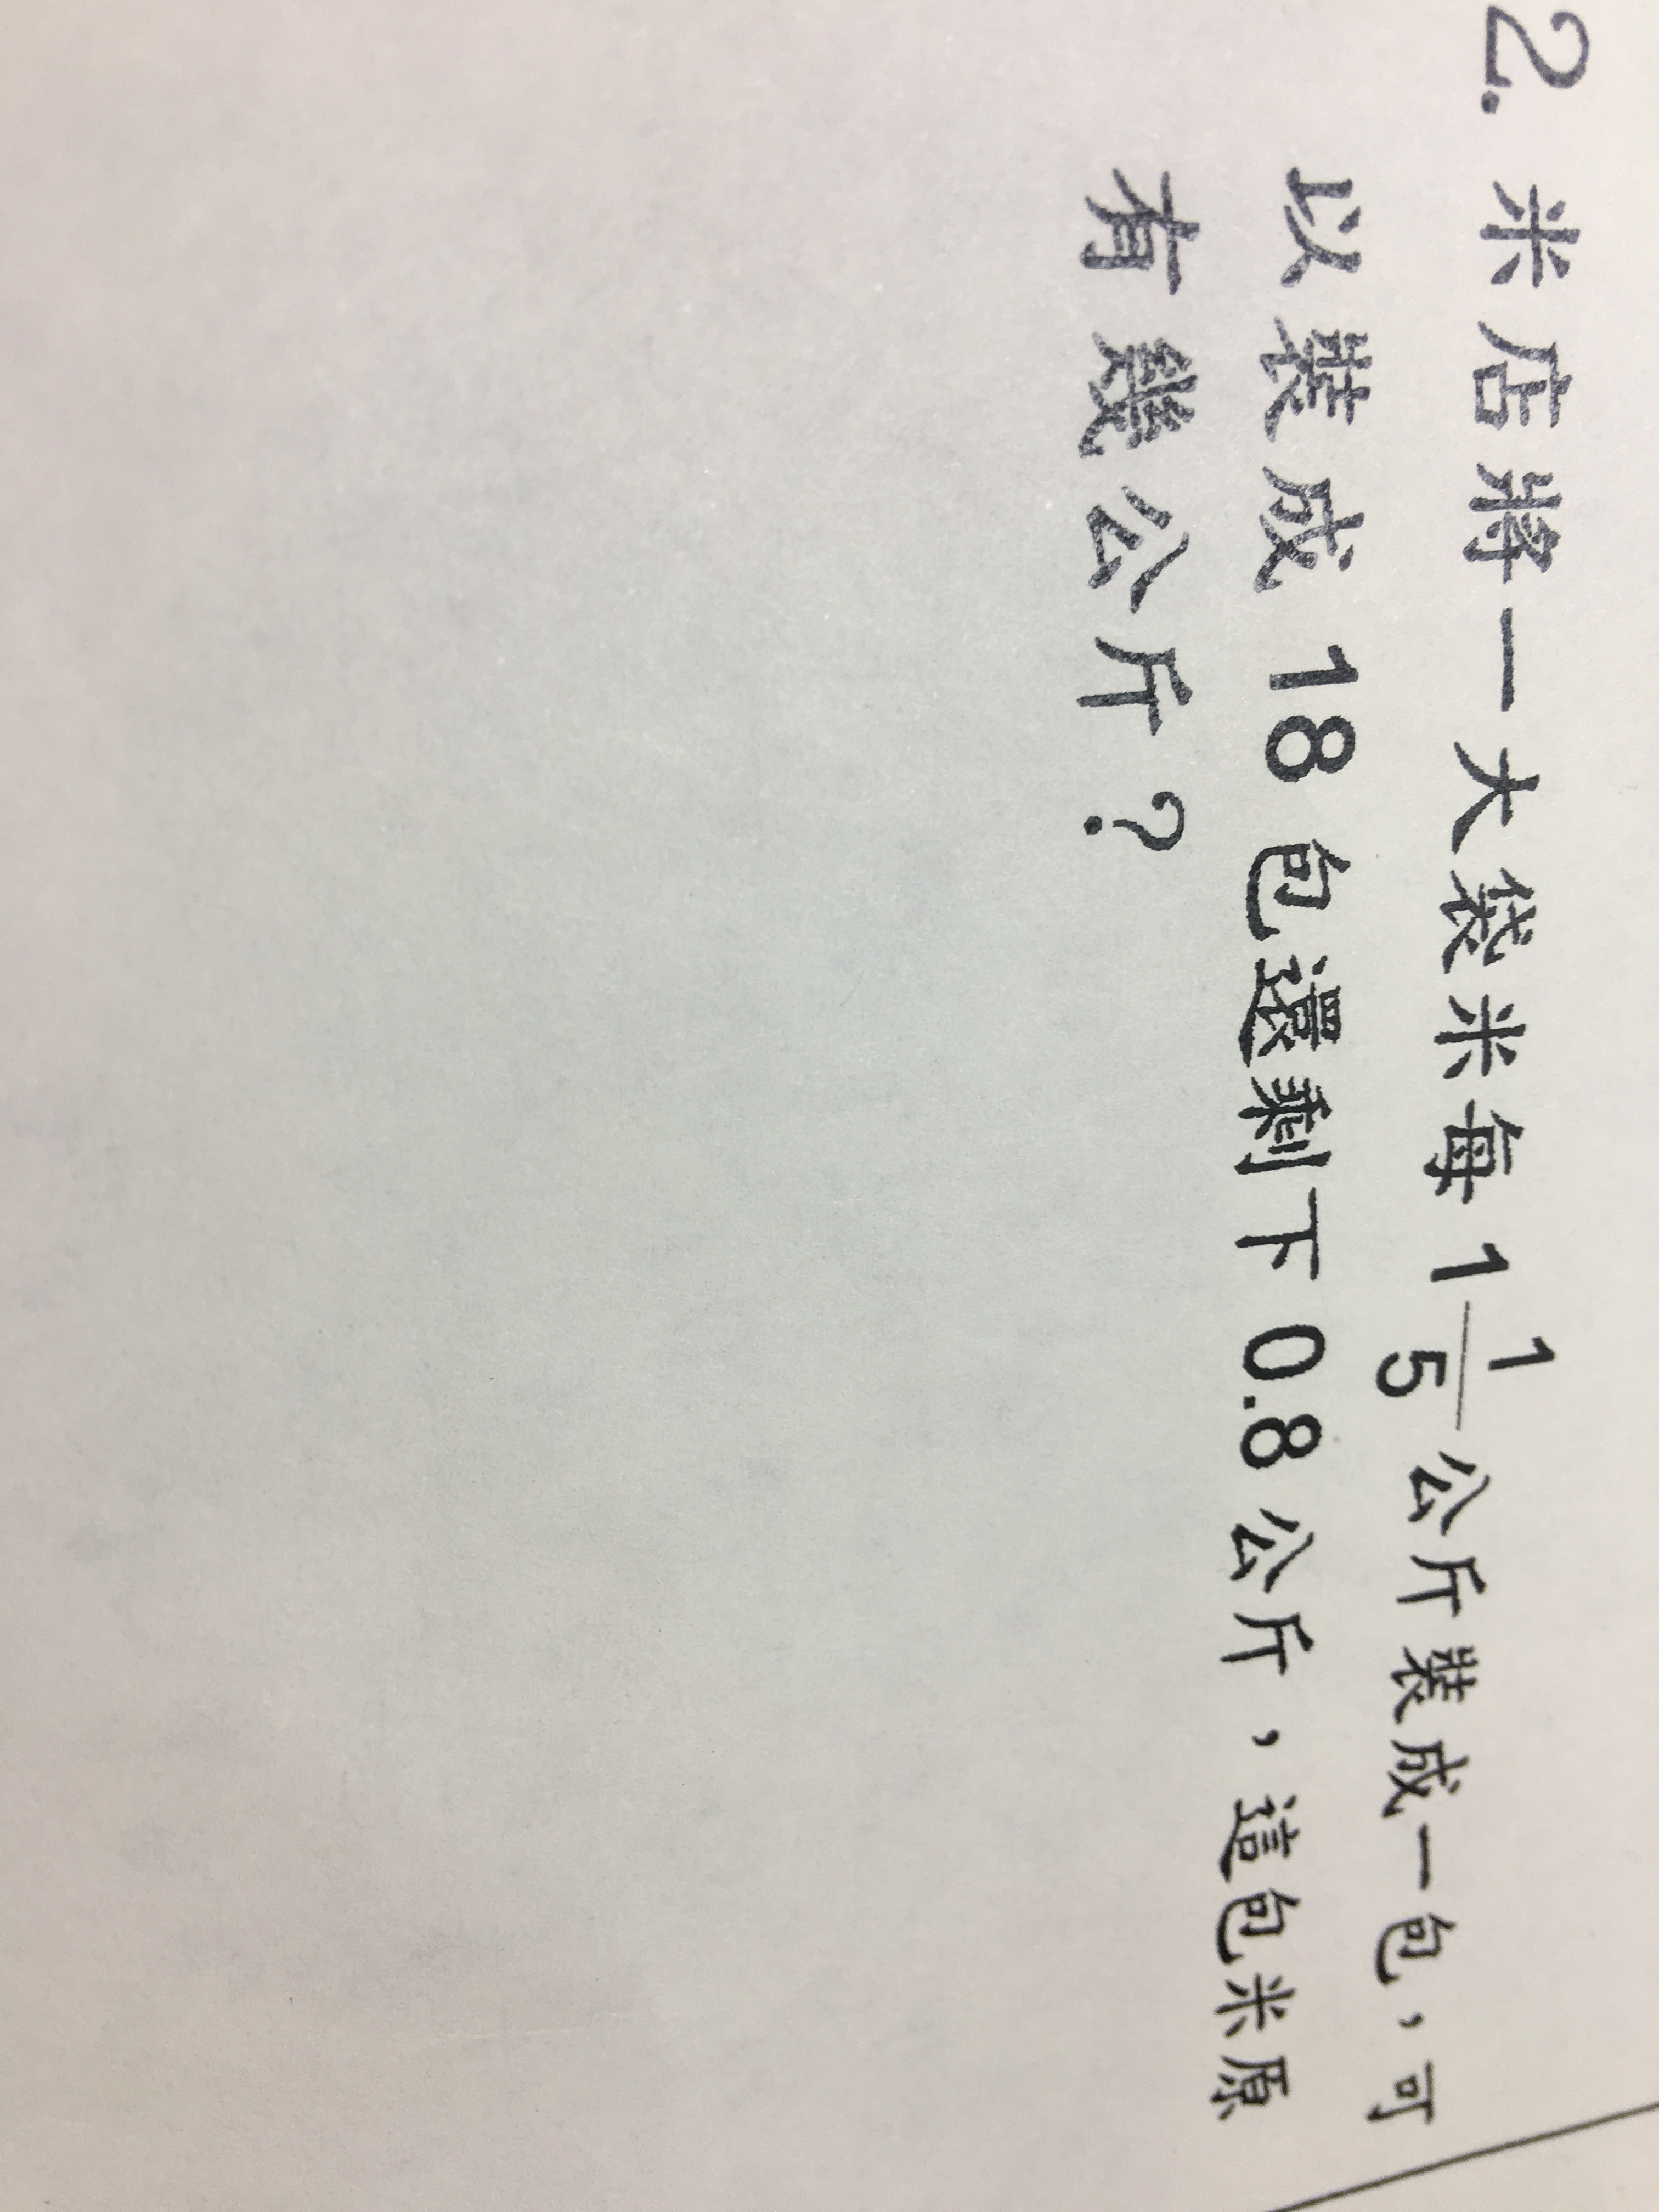 2. 米店將一大袋米每 1 1/5 公斤裝成一包，可
以裝成 18 包還剩下 0.8 公斤，這包米原
有幾公斤？